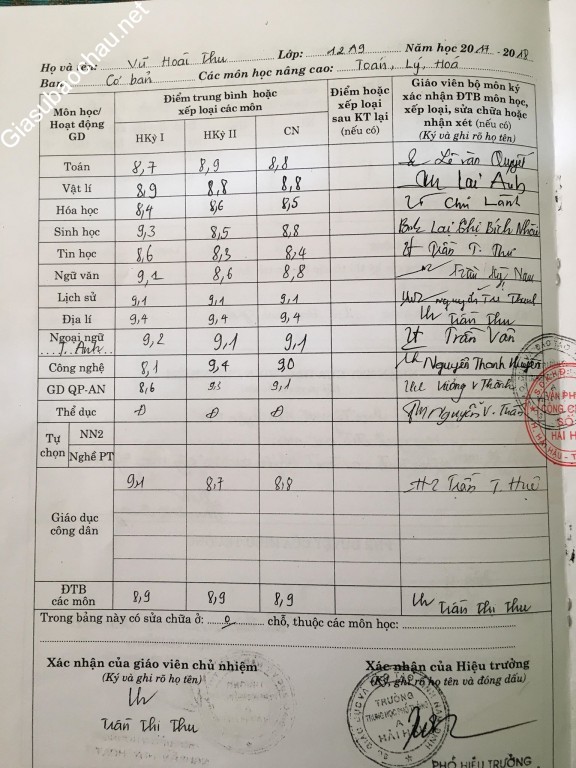 Giasubaochau.net
Họ và tên: Vũ Hoài Thu Lớp: 12A9 Năm học 2017 - 2018
Ban: Cơ bản Các môn học nâng cao: Toán, Lý, Hoá
Môn học/ Hoạt động GD Điểm trung bình hoặc xếp loại các môn Điểm hoặc xếp loại sau KT lại (nếu có) Giáo viên bộ môn ký xác nhận ĐTB môn học, xếp loại, sửa chữa hoặc nhận xét (nếu có) (Ký và ghi rõ họ tên)
HKỳ I HKỳ II CN
Toán 8,7 8,9 8,8 Lê Văn Quyết
Vật lí 8,9 8,8 8,8 Lại Anh
Hóa học 8,4 8,6 8,5 Chí Lành
Sinh học 9,3 8,5 8,8 Lại Thị Bích
Tin học 8,6 8,3 8,4 Trần T. Thu
Ngữ văn 9,1 8,6 8,8 Nam
Lịch sử 9,1 9,1 9,1 Nguyễn
Địa lí 9,4 9,4 9,4 Trần Thu
Ngoại ngữ 9,2 9,1 9,1 Trần Vân
T. Anh
Công nghệ 8,1 9,4 90 Nguyễn Thanh Huyền
GD QP-AN 8,6 9,3 9,1 Vương V Thành
Thể dục Đ Đ Đ Nguyễn V. Trần
Tự chọn NN2
Nghề PT
Giáo dục công dân 9,1 8,7 8,8 Trần T. Huệ
ĐTB các môn 8,9 8,9 8,9 Trần Thị Thu
Trong bảng này có sửa chữa ở: 0 chỗ, thuộc các môn học:
Xác nhận của giáo viên chủ nhiệm
(Ký và ghi rõ họ tên)
Trần Thị Thu
Xác nhận của Hiệu trưởng
(Ký, ghi rõ họ tên và đóng dấu)
TRƯỜNG
TRUNG HỌC PHỔ THÔNG
A
HẢI HẬU
PHÓ HIỆU TRƯỞNG